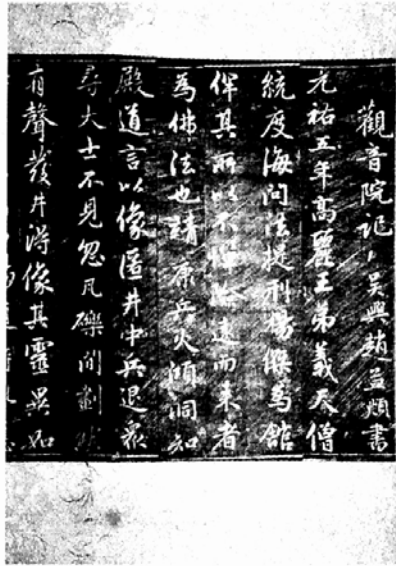 觀音院記 吳興趙孟頫書
元祐五年高麗王弟義天僧
統度海問法提刑楊傑為館
伴其所以不憚險遠而来者
為佛法也靖康兵火傾洞知
殿道言以像匿井中兵退衆
尋大士不見忽瓦礫間劃然
有聲發井得像其靈異如